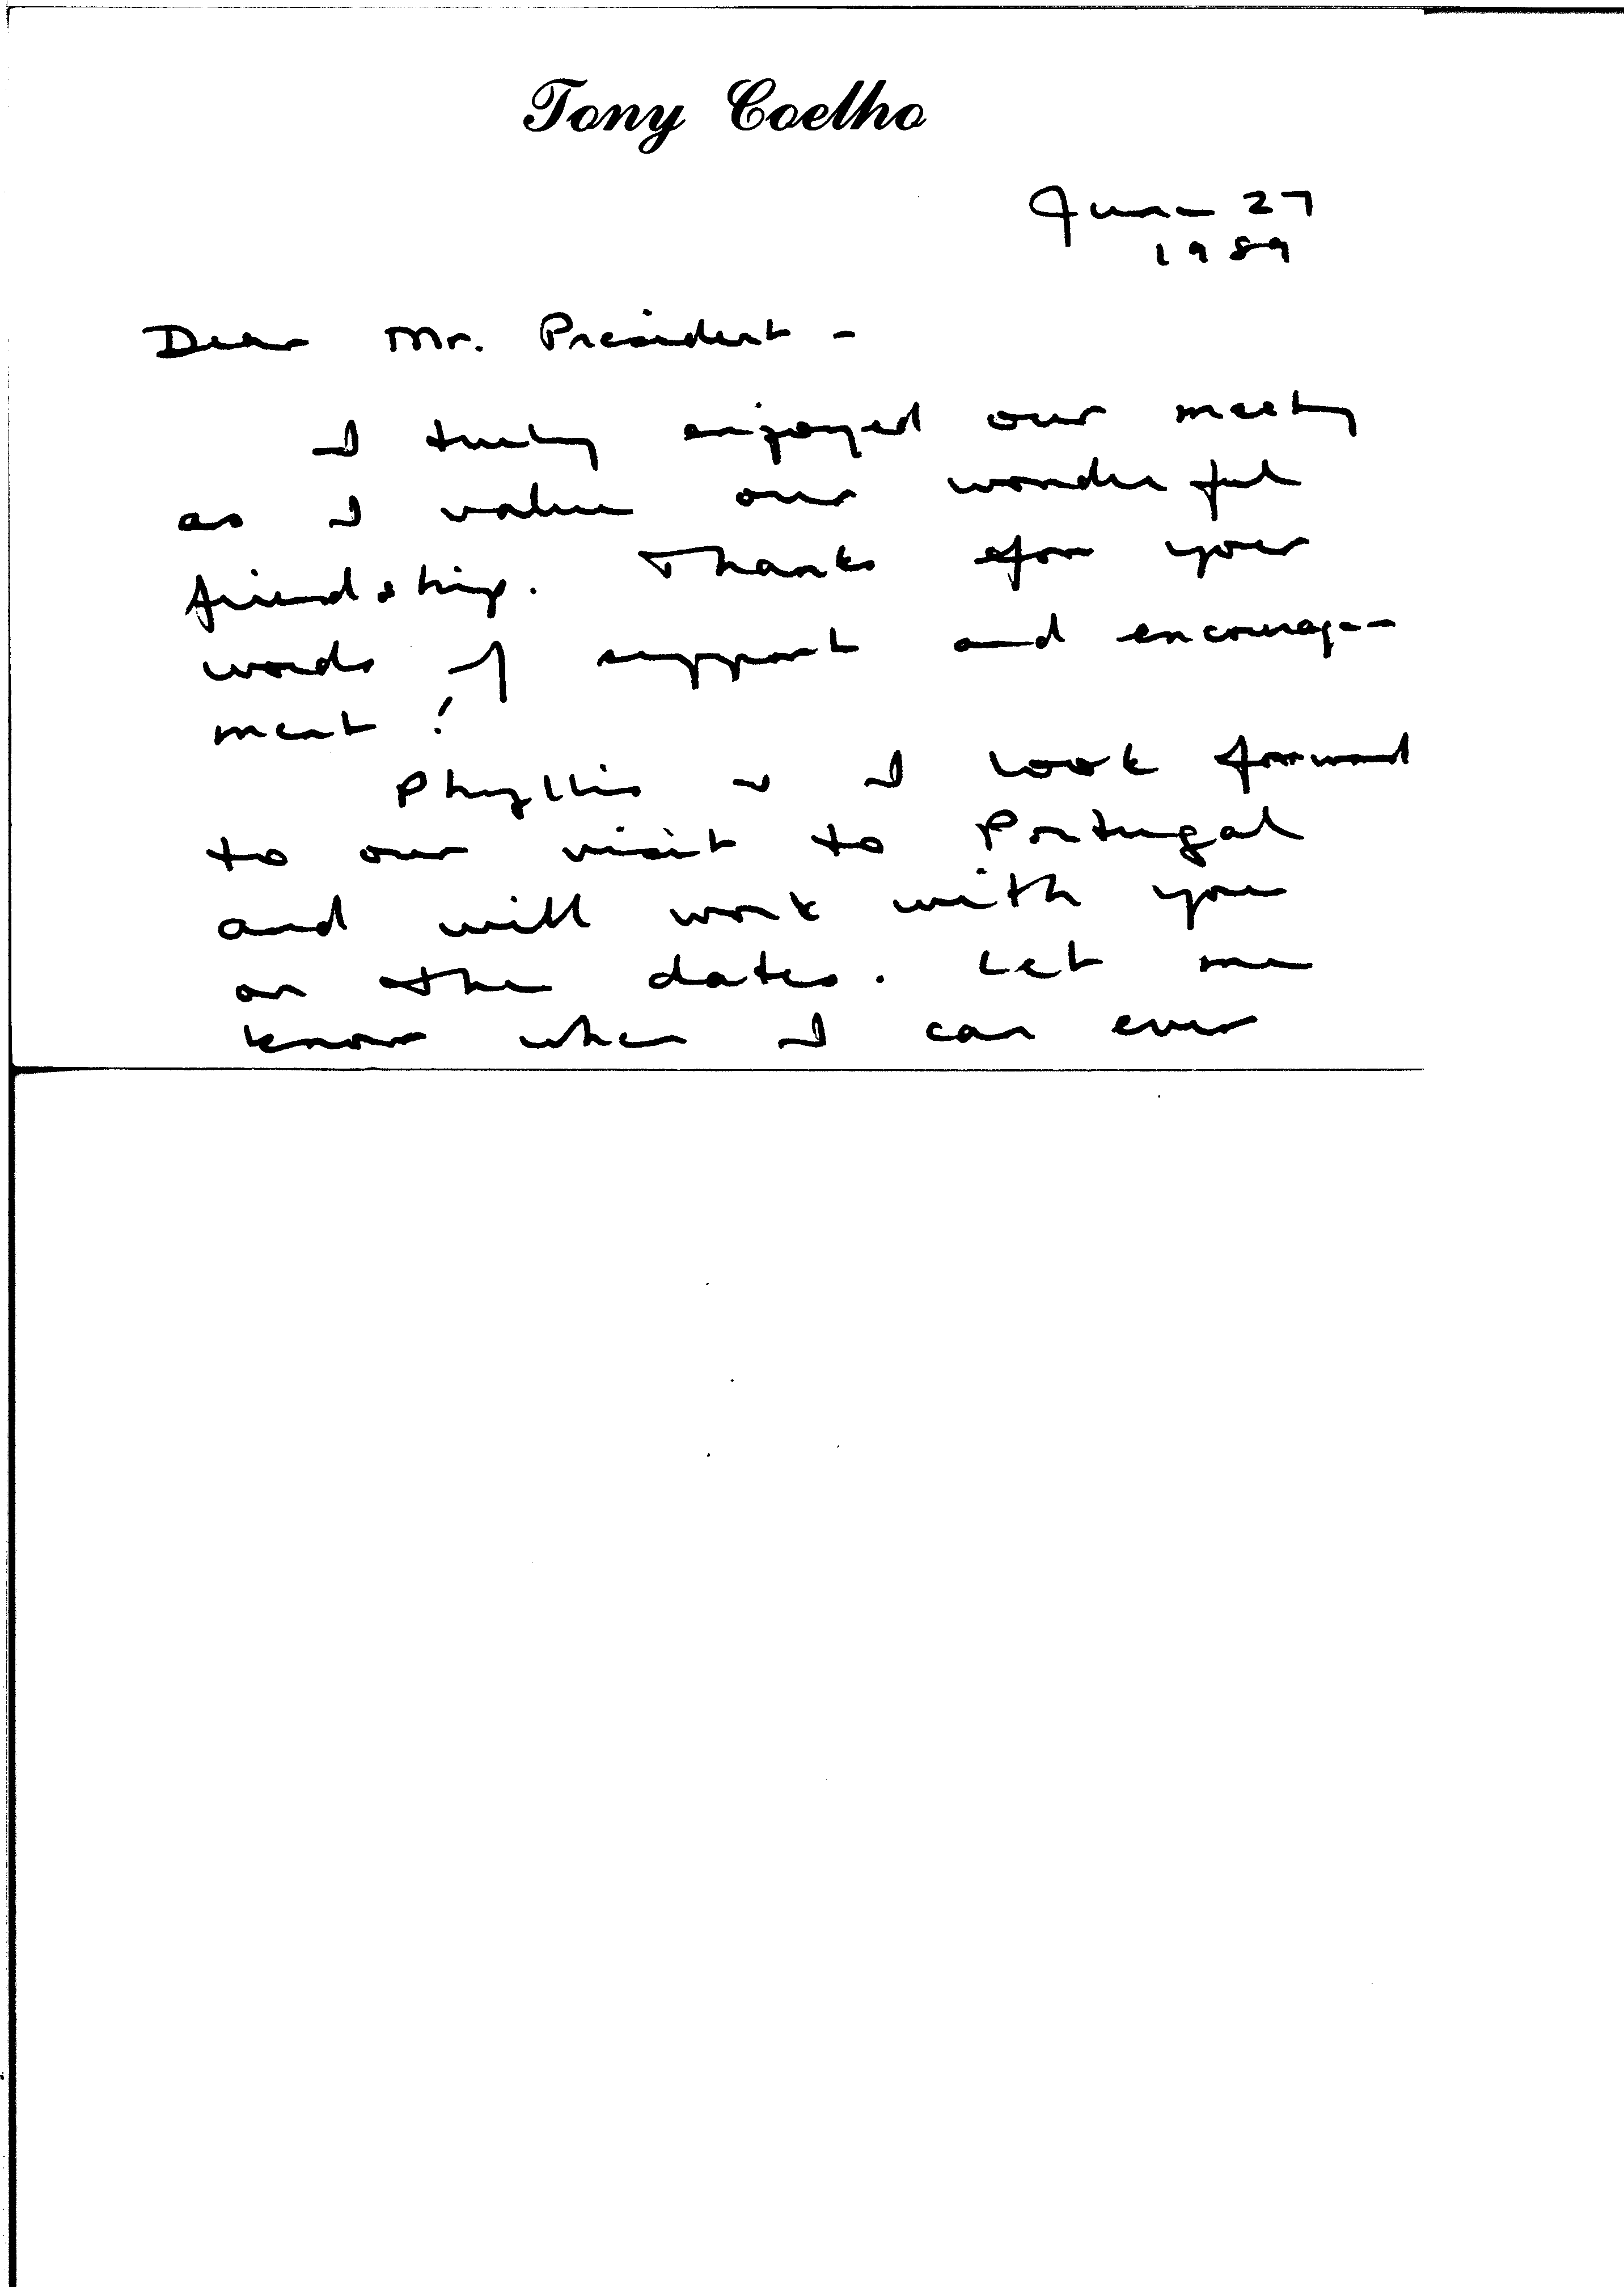 Tony Coelho
June 27
1989
Dear Mr. President -
I truly enjoyed our meeting
as I value our wonderful
friendship. Thanks for your
words of support and encourage-
ment!
Phyllis & I look forward
to our visit to Portugal
and will work with you
on the dates. Let me
know when I can ever